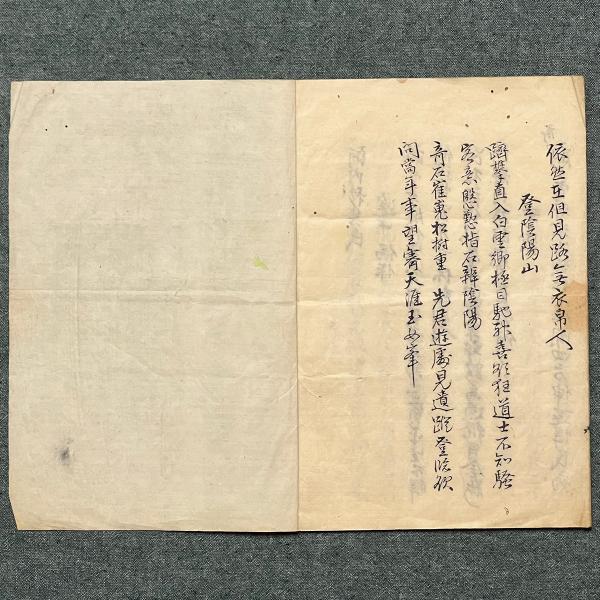 依然在但見路無衣帛人
登陰陽山
躋攀直入白雲鄉極目馳神喜欲狂道士不知騷
客意慇懃指石辨陰陽
奇石崔嵬松樹重 先君遊處見遺蹤登臨欲
問當年事望霽天涯玉女峯